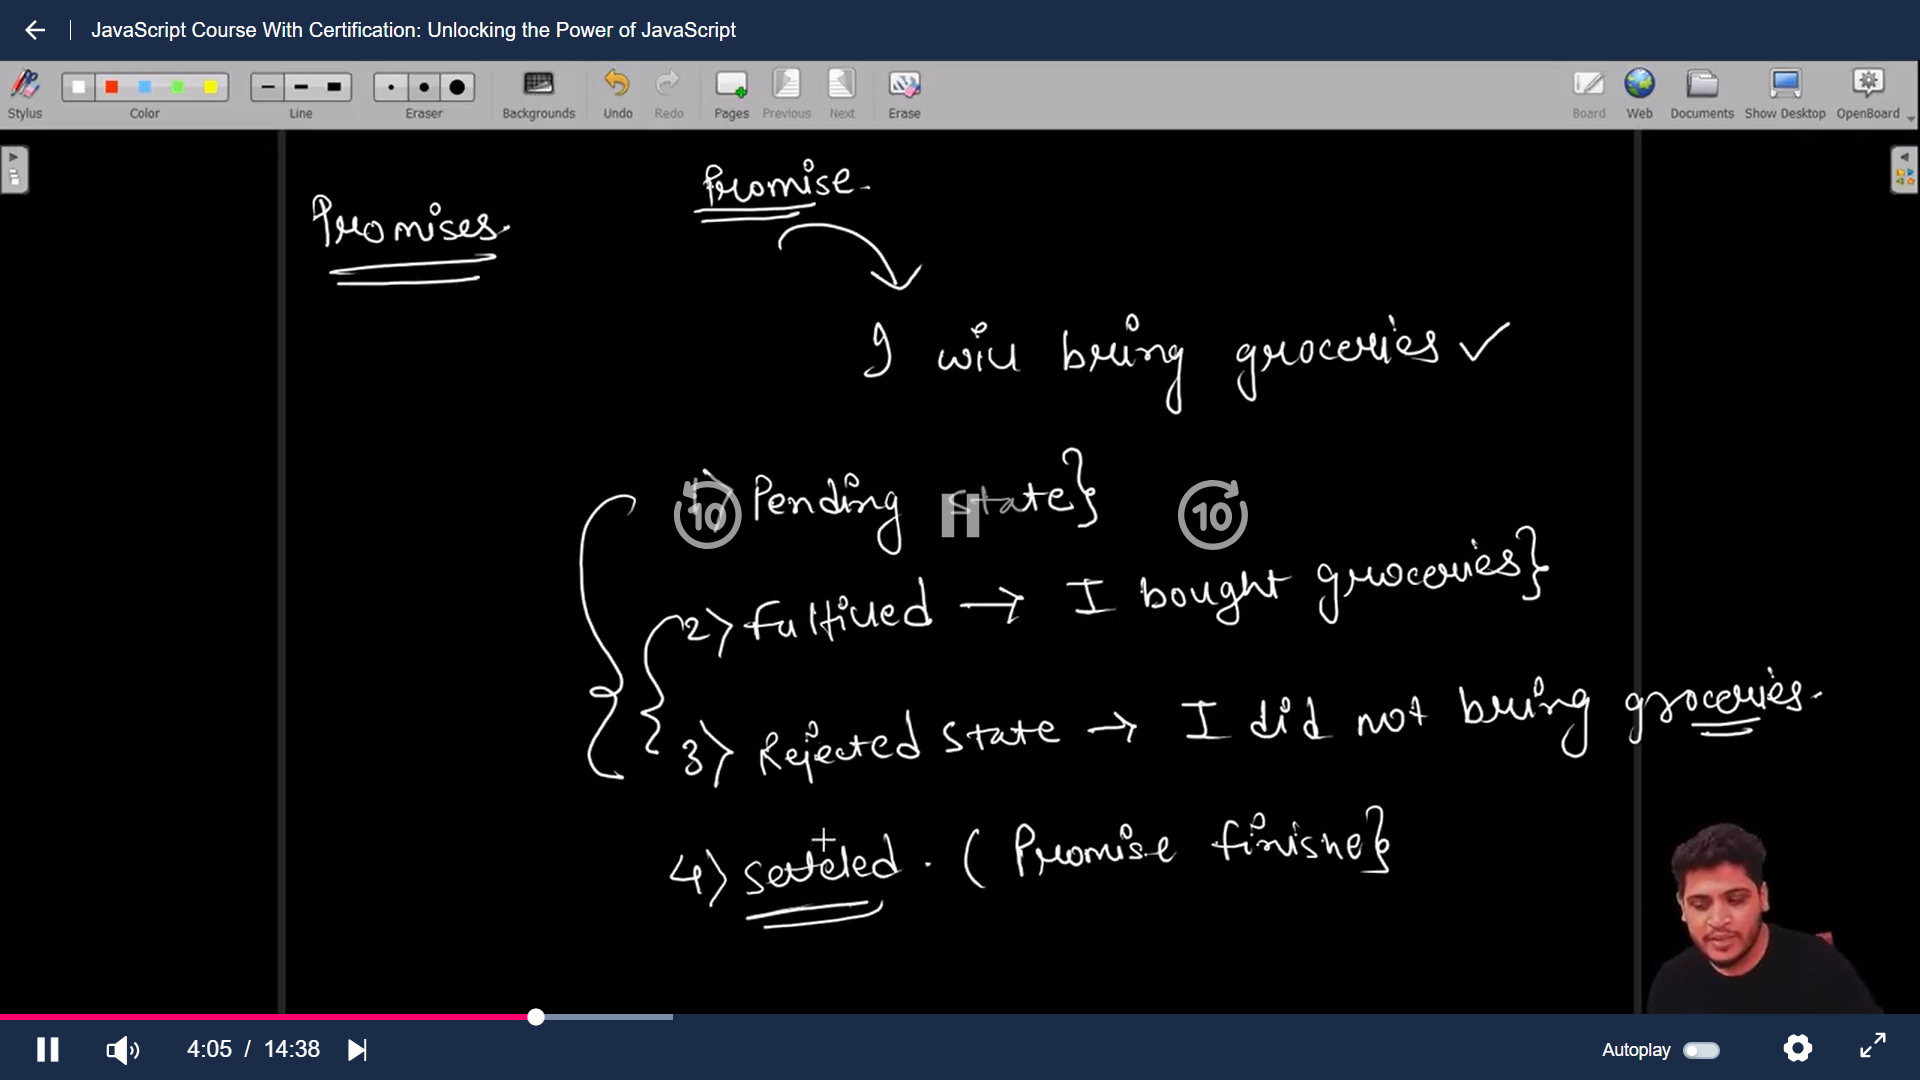 JavaScript Course With Certification: Unlocking the Power of JavaScript
Stylus Color Line Eraser Backgrounds Undo Redo Pages Previous Next Erase Board Web Documents Show Desktop OpenBoard
Promises
Promise
I will bring groceries ✓
1) Pending state}
2) Fulfilled → I bought groceries}
3) Rejected state → I did not bring groceries.
4) setteled. (Promise finishe}
10 10
4:05 / 14:38
Autoplay